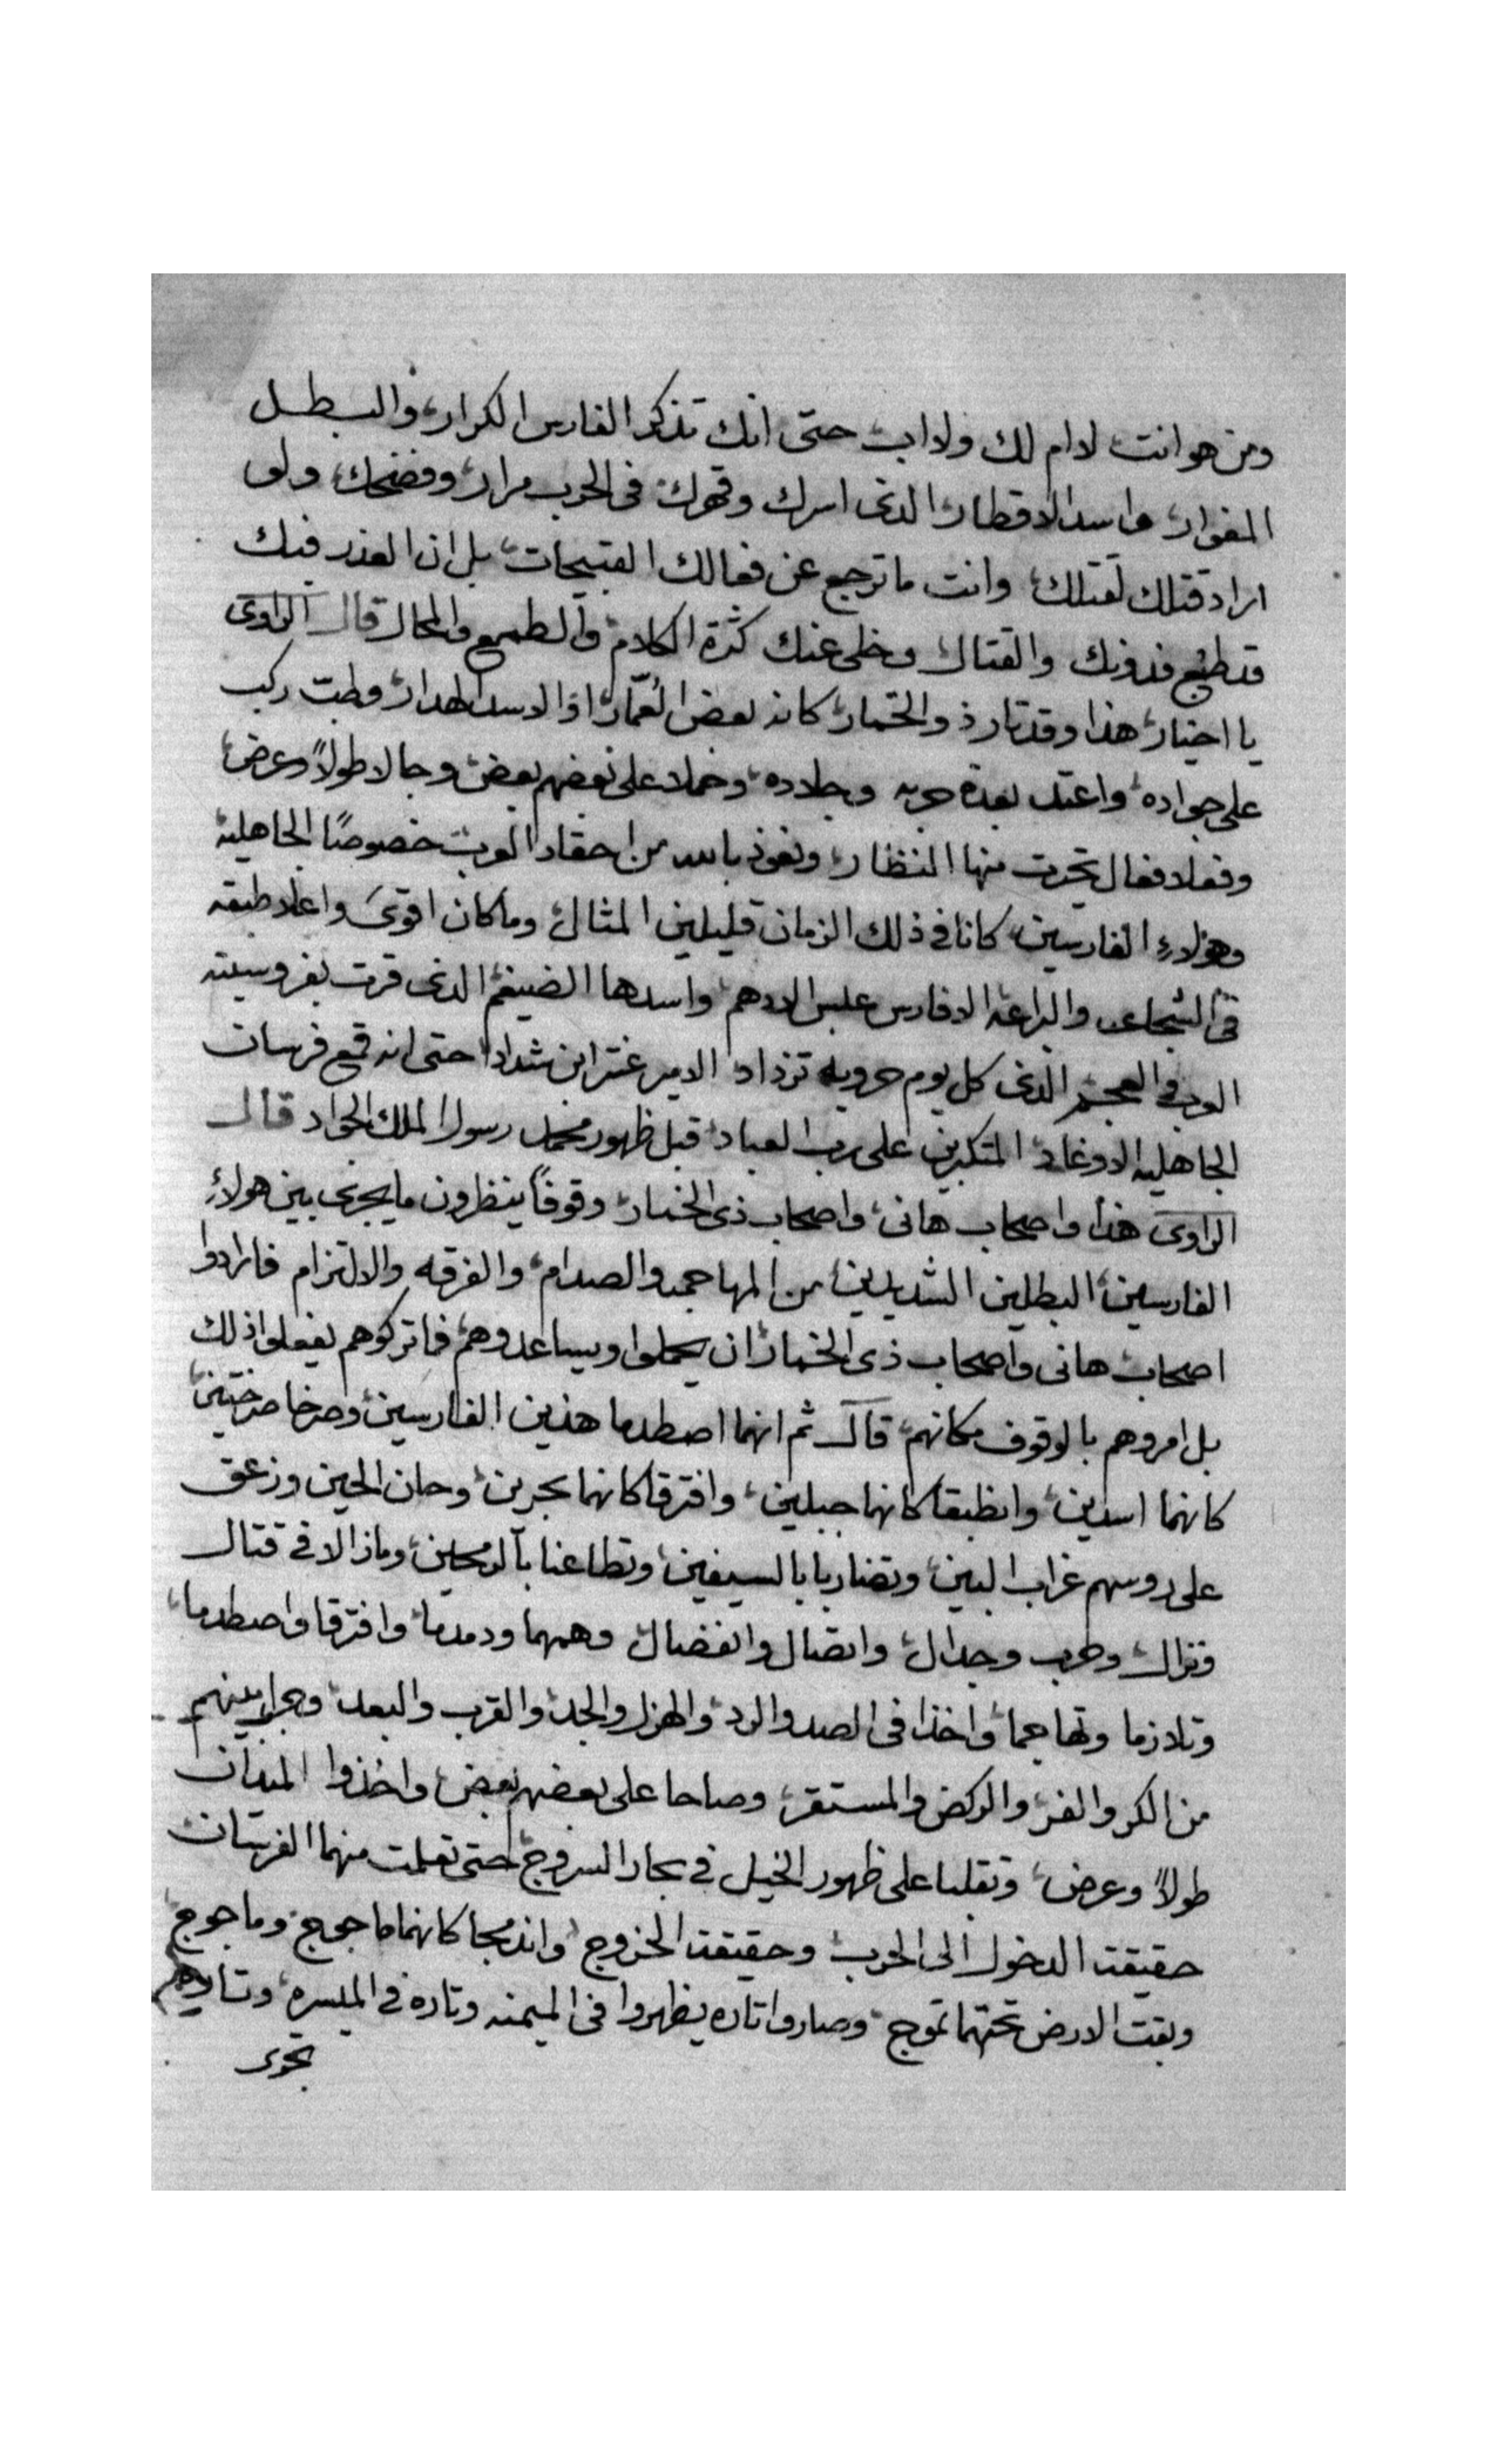 ومن هو انت لا ام لك ولا اب حتى انك تذكر الفارس الكرار، والبطل
المغوار، واسد الاقطار، الذى اسرك وقهرك فى الحرب مرار، وفضحك، ولو
اراد قتلك لقتلك، وانت ما ترجع عن فعالك القبيحات، بل ان الغدر فيك
قد طبع فدونك والقتال وخلى عنك كثرة الكلام، والطمع والمحال قال الراوى
يا اخيار، هذا وقد تار ذو الخمار، كانه بعض العمّار، او الاسد الهدار، وطب ركب
على جواده، واعتد بعدة حربه وجلاده، وحملا على بعضهم بعض، وجالا طولاً وعرض،
وفعلا فعال تحيرت منها النظار، ونعوذ بالله من احقاد العرب، خصوصًا الجاهلية
وهولاءِ الفارسين، كانا فى ذلك الزمان قليلين المثال، وما كان اقوى واعلا طبقه
فى الشجاعه والبراعه الا فارس عبس الادهم، واسدها الضيغم، الذى قرت بفروسيته
العرب والعجم، الذى كل يوم حروبه تزداد، الامير عنتر ابن شداد، حتى انه قمع فرسان
الجاهليه الاوغاد، المتكبرين على رب العباد، قبل ظهور محمد رسول الملك الجواد قال
الراوى هذا واصحاب هانى، واصحاب ذى الخمار، وقوفاً ينظرون ما يجرى بين هولاءِ
الفارسين، البطلين الشديدين، من المهاجمه والصدام، والفرقه والالتزام فارادوا
اصحاب هانى واصحاب ذى الخمار، ان يحملوا ويساعدوهم، فما تركوهم يفعلوا ذلك
بل امروهم بالوقوف مكانهم، قال ثم انهما اصطدما هذين الفارسين، وصرخا صرختين،
كانهما اسدين، وانطبقا كانهما جبلين، وافترقا كانهما بحرين، وحان الحين وزعق
على روسهم غراب البين، وتضاربا بالسيفين، وتطاعنا بالرمحين، وما زالا فى قتال
ونزال، وحرب وجدال، واتصال وانفصال، وهمهما ودمدما، وافترقا واصطدما،
وتلازما وتهاجما، واخذا فى الصد والرد، والهزل والجد، والقرب والبعد، وجرا بينهم
من الكر والفر، والركض والمستقر، وصاحا على بعضهم بعض، واخذوا الميدان
طولاً وعرض، وتقلبا على ظهور الخيل فى بحار السروج، حتى تعلمت منهما الفرسان
حقيقت الدخول الى الحرب، وحقيقت الخروج، واندمجا كانهما ياجوج وماجوج،
وبقت الارض تحتهما تموج، وصاروا تاره يظهروا فى الميمنه وتاره فى الميسره، وتاره
تجرى